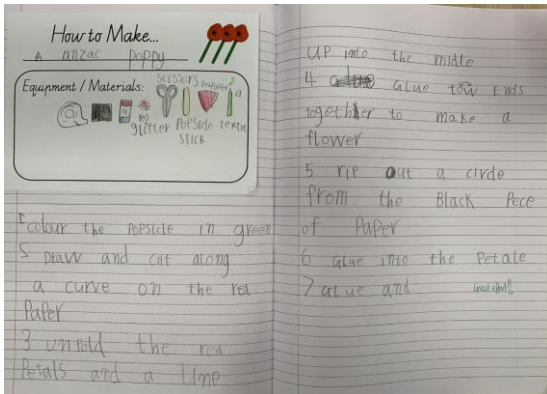 How to Make...
A anzac poppy
Equipment / Materials:
scissors
glitter
PoPSicle
Stick
textu
1 colour the PoPSicle in green
2 Draw and cut along
a curve on the red
Paper
3 unfold the red
Petals and a Line
UP into the midle
4 Glue tow Ends
together to make a
flower
5 rip out a circle
from the Black Pece
of Paper
6 Glue into the Petale
7 Glue and
Great effort!!